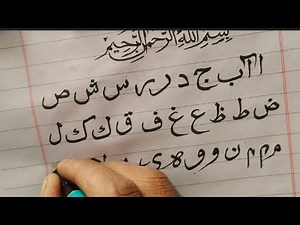 بسم الله الرحمن الرحيم
ا آ ب ج د ر ر س س ش ص
ض ط ظ ع غ ف ق ك ک ل
م م ن و و ه ی